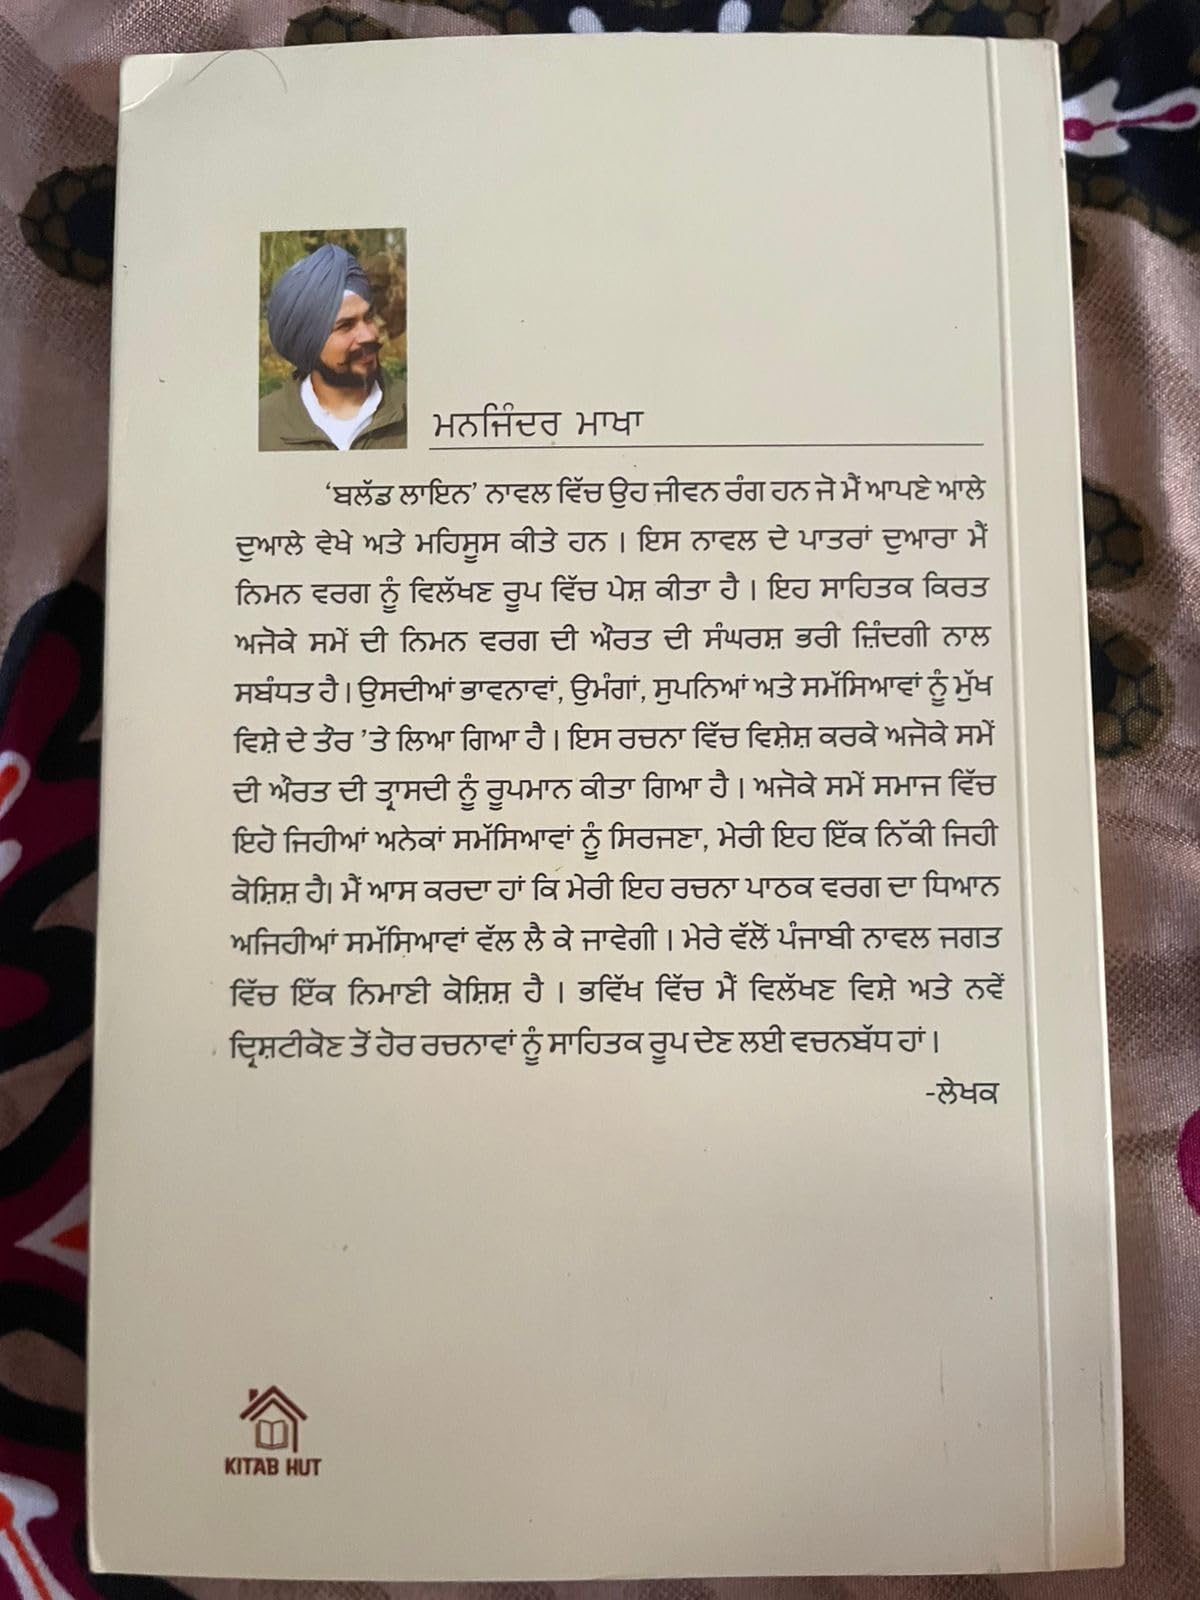 ਮਨਜਿੰਦਰ ਮਾਖਾ
‘ਬਲੱਡ ਲਾਇਨ’ ਨਾਵਲ ਵਿੱਚ ਉਹ ਜੀਵਨ ਰੰਗ ਹਨ ਜੋ ਮੈਂ ਆਪਣੇ ਆਲੇ
ਦੁਆਲੇ ਵੇਖੇ ਅਤੇ ਮਹਿਸੂਸ ਕੀਤੇ ਹਨ । ਇਸ ਨਾਵਲ ਦੇ ਪਾਤਰਾਂ ਦੁਆਰਾ ਮੈਂ
ਨਿਮਨ ਵਰਗ ਨੂੰ ਵਿਲੱਖਣ ਰੂਪ ਵਿੱਚ ਪੇਸ਼ ਕੀਤਾ ਹੈ । ਇਹ ਸਾਹਿਤਕ ਕਿਰਤ
ਅਜੋਕੇ ਸਮੇਂ ਦੀ ਨਿਮਨ ਵਰਗ ਦੀ ਔਰਤ ਦੀ ਸੰਘਰਸ਼ ਭਰੀ ਜ਼ਿੰਦਗੀ ਨਾਲ
ਸਬੰਧਤ ਹੈ । ਉਸਦੀਆਂ ਭਾਵਨਾਵਾਂ, ਉਮੰਗਾਂ, ਸੁਪਨਿਆਂ ਅਤੇ ਸਮੱਸਿਆਵਾਂ ਨੂੰ ਮੁੱਖ
ਵਿਸ਼ੇ ਦੇ ਤੌਰ ’ਤੇ ਲਿਆ ਗਿਆ ਹੈ । ਇਸ ਰਚਨਾ ਵਿੱਚ ਵਿਸ਼ੇਸ਼ ਕਰਕੇ ਅਜੋਕੇ ਸਮੇਂ
ਦੀ ਔਰਤ ਦੀ ਤ੍ਰਾਸਦੀ ਨੂੰ ਰੂਪਮਾਨ ਕੀਤਾ ਗਿਆ ਹੈ । ਅਜੋਕੇ ਸਮੇਂ ਸਮਾਜ ਵਿੱਚ
ਇਹੋ ਜਿਹੀਆਂ ਅਨੇਕਾਂ ਸਮੱਸਿਆਵਾਂ ਨੂੰ ਸਿਰਜਣਾ, ਮੇਰੀ ਇਹ ਇੱਕ ਨਿੱਕੀ ਜਿਹੀ
ਕੋਸ਼ਿਸ਼ ਹੈ। ਮੈਂ ਆਸ ਕਰਦਾ ਹਾਂ ਕਿ ਮੇਰੀ ਇਹ ਰਚਨਾ ਪਾਠਕ ਵਰਗ ਦਾ ਧਿਆਨ
ਅਜਿਹੀਆਂ ਸਮੱਸਿਆਵਾਂ ਵੱਲ ਲੈ ਕੇ ਜਾਵੇਗੀ । ਮੇਰੇ ਵੱਲੋਂ ਪੰਜਾਬੀ ਨਾਵਲ ਜਗਤ
ਵਿੱਚ ਇੱਕ ਨਿਮਾਣੀ ਕੋਸ਼ਿਸ਼ ਹੈ । ਭਵਿੱਖ ਵਿੱਚ ਮੈਂ ਵਿਲੱਖਣ ਵਿਸ਼ੇ ਅਤੇ ਨਵੇਂ
ਦ੍ਰਿਸ਼ਟੀਕੋਣ ਤੋਂ ਹੋਰ ਰਚਨਾਵਾਂ ਨੂੰ ਸਾਹਿਤਕ ਰੂਪ ਦੇਣ ਲਈ ਵਚਨਬੱਧ ਹਾਂ ।
-ਲੇਖਕ
KITAB HUT